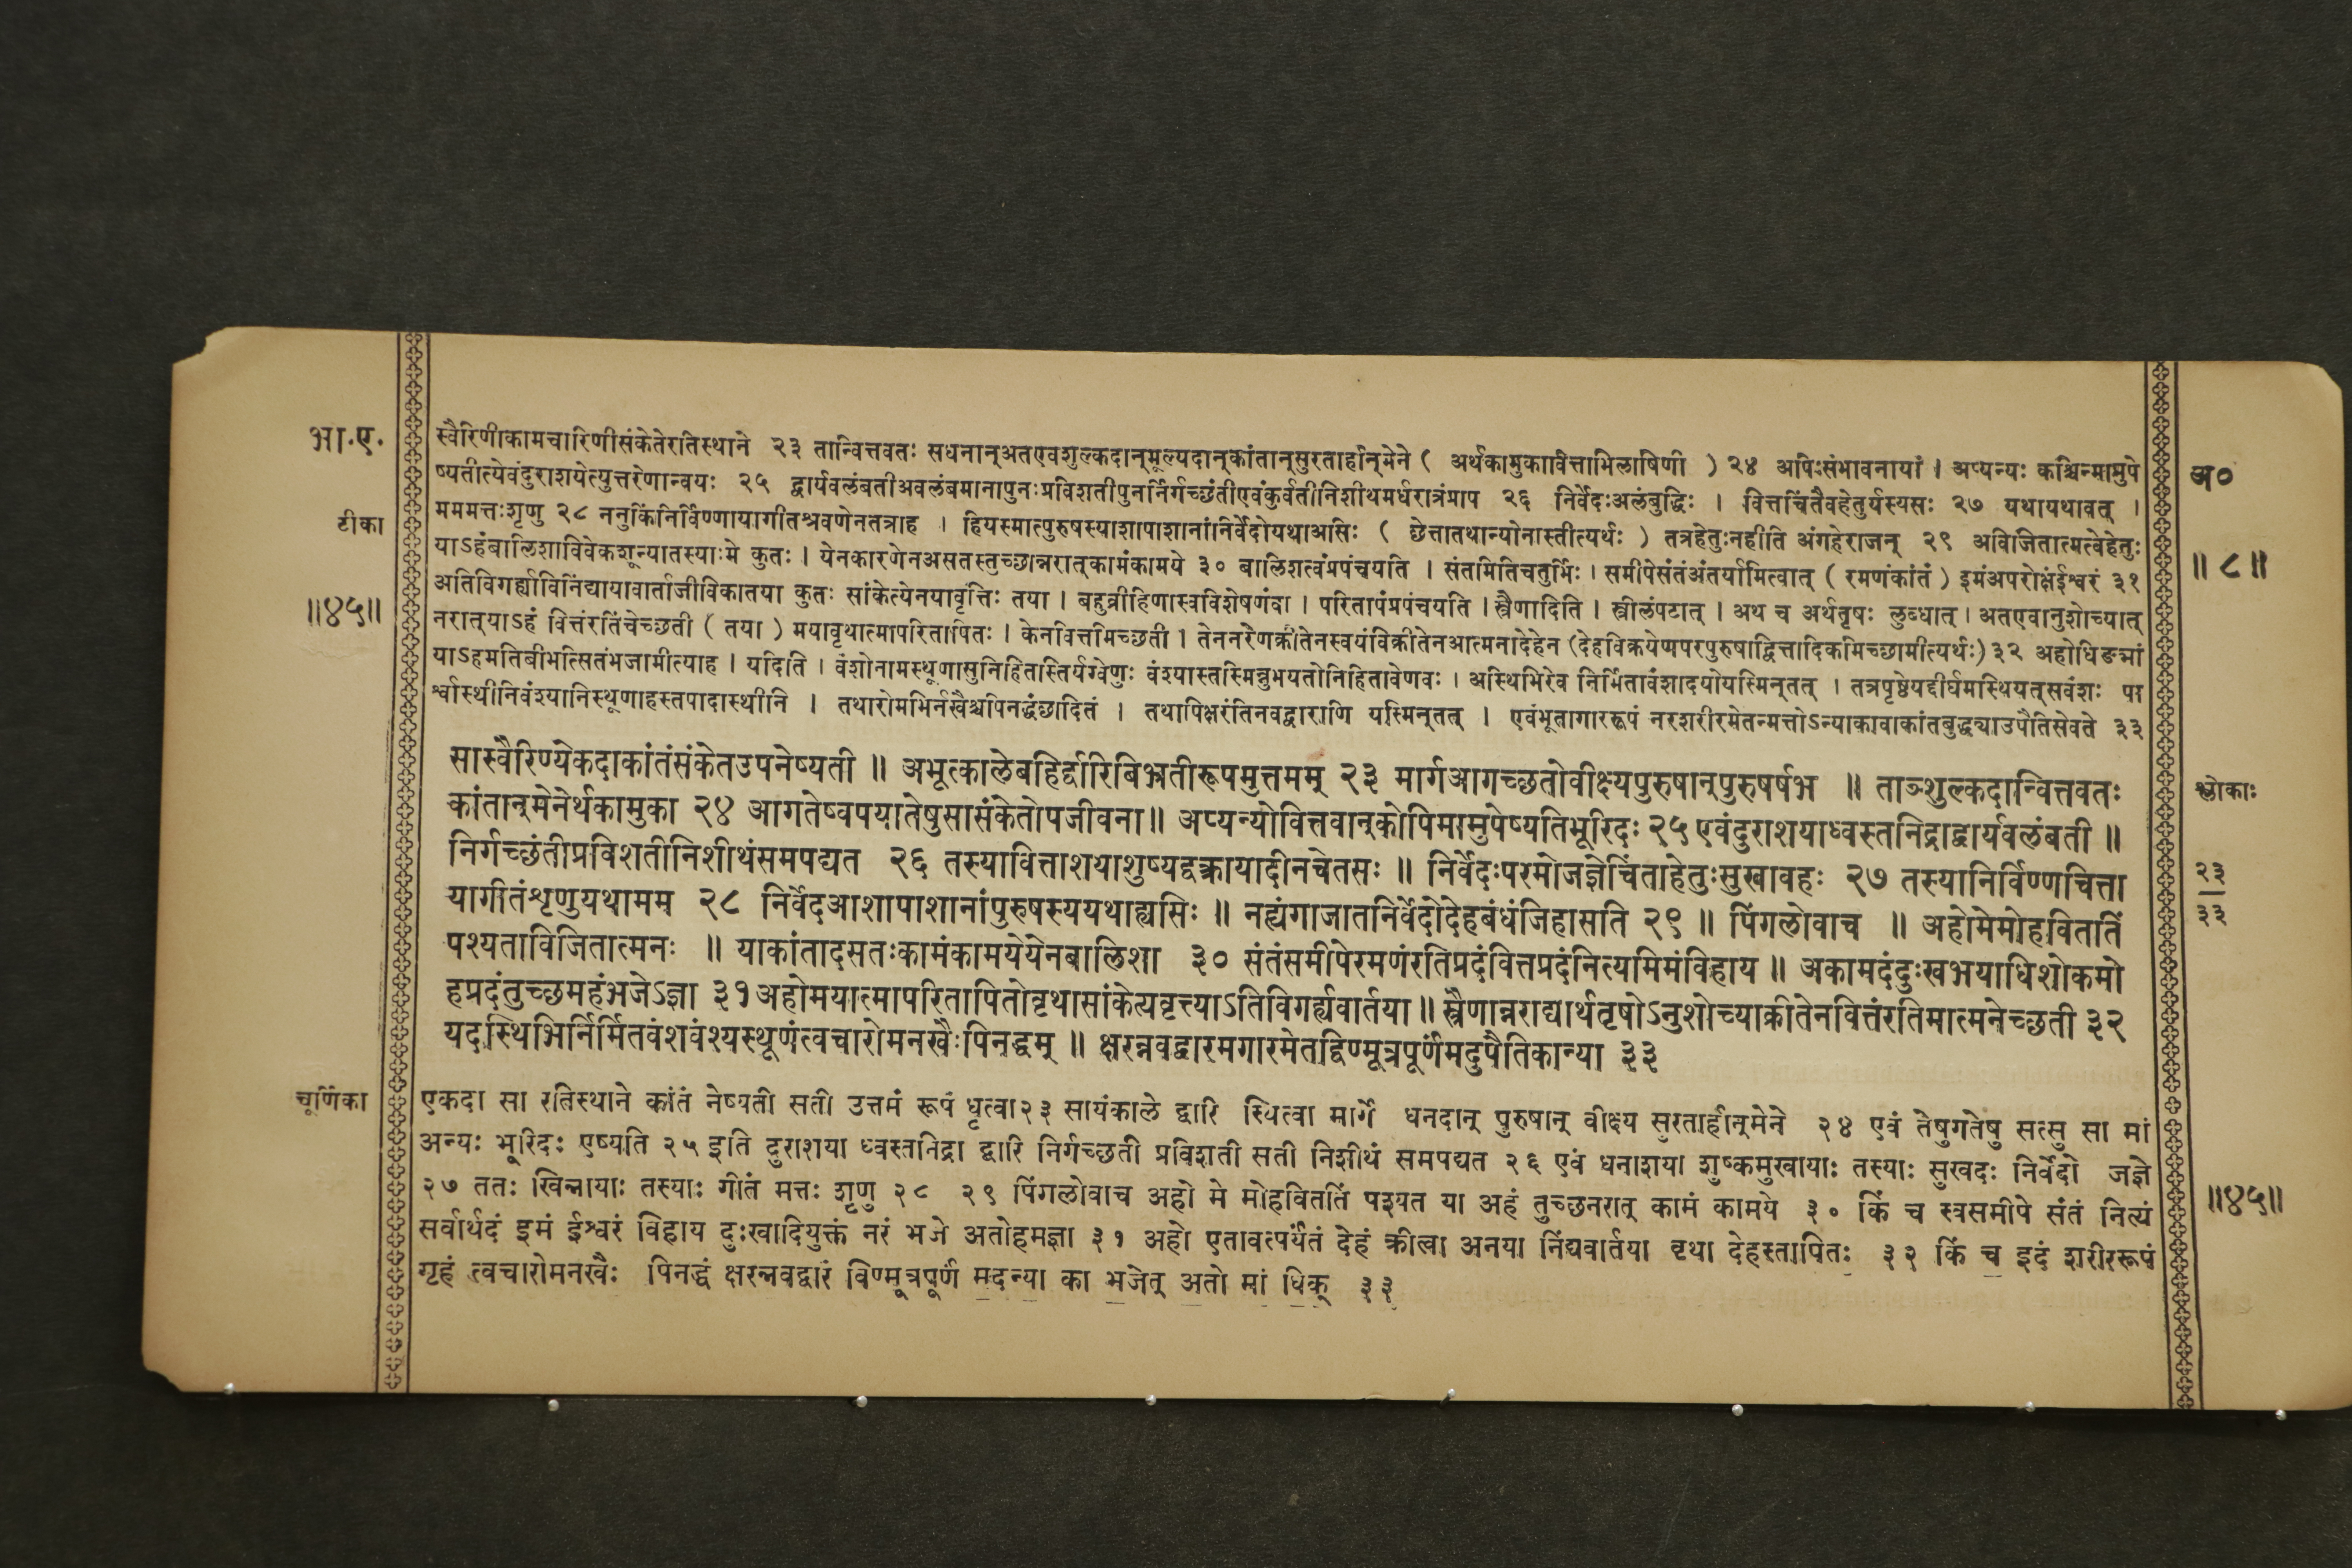 भा.ए.
टीका
॥४५॥
स्वैरिणीकामचारिणीसंकेतेरतिस्थाने २३ तान्वित्तवतः सधनान्अतएवशुल्कदान्मूल्यदान्कांतान्सुरतार्हान्मेने ( अर्थकामुकावित्ताभिलाषिणी ) २४ अपिःसंभावनायां । अप्यन्यः कश्चिन्मामुपे
ष्यतीत्येवंदुराशयेत्युत्तरेणान्वयः २५ द्वार्यवलंबतीअवलंबमानापुनःप्रविशतीपुनर्निर्गच्छंतीएवंकुर्वतीनिशीथमर्धरात्रंप्राप २६ निर्वेदःअलंबुद्धिः । वित्तचिंतैवहेतुर्यस्यसः २७ यथायथावत् ।
मममत्तःशृणु २८ ननुकिंनिर्विण्णायागीतश्रवणेनतत्राह । हियस्मात्पुरुषस्याशापाशानांनिर्वेदोयथाअसिः ( छेत्तातथान्योनास्तीत्यर्थः ) तत्रहेतुःनहीति अंगहेराजन् २९ अविजितात्मत्वेहेतुः
याऽहंबालिशाविवेकशून्यातस्याःमे कुतः । येनकारणेनअसतस्तुच्छान्नरात्कामंकामये ३० बालिशत्वंप्रपंचयति । संतमितिचतुर्भिः । समीपेसंतंअंतर्यामित्वात् ( रमणंकांतं ) इमंअपरोक्षंईश्वरं ३१
अतिविगर्ह्याविनिंद्यायावार्ताजीविकातया कुतः सांकेत्येनयावृत्तिः तया । बहुव्रीहिणास्वविशेषणंवा । परितापंप्रपंचयति । स्त्रैणादिति । स्त्रीलंपटात् । अथ च अर्थतृषः लुब्धात् । अतएवानुशोच्यात्
नरात्याऽहं वित्तंरतिंचेच्छती ( तया ) मयावृथात्मापरितापितः । केनवित्तमिच्छती । तेननरेणक्रीतेनस्वयंविक्रीतेनआत्मनादेहेन (देहविक्रयेणपरपुरुषाद्वित्तादिकमिच्छामीत्यर्थः) ३२ अहोधिङ्मां
याऽहमतिबीभत्सितंभजामीत्याह । यदिति । वंशोनामस्थूणासुनिहितस्तिर्यग्वेणुः वंश्यास्तस्मिन्नुभयतोनिहितावेणवः । अस्थिभिरेव निर्मितावंशादयोयस्मिन्तत् । तत्रपृष्ठेयद्दीर्घमस्थियत्सवंशः पा
र्श्वास्थीनिवंश्यानिस्थूणाहस्तपादास्थीनि । तथारोमभिर्नखैश्चपिनद्धंछादितं । तथापिक्षरंतिनवद्वाराणि यस्मिन्तत् । एवंभूतागाररूपं नरशरीरमेतन्मत्तोऽन्याकावाकांतबुद्ध्याउपैतिसेवते ३३
अ०
॥ ८ ॥
सास्वैरिण्येकदाकांतंसंकेतउपनेष्यती ॥ अभूत्कालेबहिर्द्वारिबिभ्रतीरूपमुत्तमम् २३ मार्गआगच्छतोवीक्ष्यपुरुषान्पुरुषर्षभ ॥ ताञ्शुल्कदान्वित्तवतः
कांतान्मेनेर्थकामुका २४ आगतेष्वपयातेषुसासंकेतोपजीवना॥ अप्यन्योवित्तवान्कोपिमामुपेष्यतिभूरिदः २५ एवंदुराशयाध्वस्तनिद्राद्वार्यवलंबती ॥
निर्गच्छंतीप्रविशतीनिशीथंसमपद्यत २६ तस्यावित्ताशयाशुष्यद्वक्त्रायादीनचेतसः ॥ निर्वेदःपरमोजज्ञेचिंताहेतुःसुखावहः २७ तस्यानिर्विण्णचित्ता
यागीतंशृणुयथामम २८ निर्वेदआशापाशानांपुरुषस्ययथाह्यसिः ॥ नह्यंगाजातनिर्वेदोदेहबंधंजिहासति २९ ॥ पिंगलोवाच ॥ अहोमेमोहविततिं
पश्यताविजितात्मनः ॥ याकांतादसतःकामंकामयेयेनबालिशा ३० संतंसमीपेरमणंरतिप्रदंवित्तप्रदंनित्यमिमंविहाय ॥ अकामदंदुःखभयाधिशोकमो
हप्रदंतुच्छमहंभजेऽज्ञा ३१ अहोमयात्मापरितापितोवृथासांकेत्यवृत्त्याऽतिविगर्ह्यवार्तया ॥ स्त्रैणान्नराद्यार्थतृषोऽनुशोच्याक्रीतेनवित्तंरतिमात्मनेच्छती ३२
यदस्थिभिर्निर्मितवंशवंश्यस्थूणंत्वचारोमनखैःपिनद्धम् ॥ क्षरन्नवद्वारमगारमेतद्विण्मूत्रपूर्णंमदुपैतिकान्या ३३
श्लोकाः
२३
३३
चूर्णिका
एकदा सा रतिस्थाने कांतं नेष्यती सती उत्तमं रूपं धृत्वा२३ सायंकाले द्वारि स्थित्वा मार्गे धनदान् पुरुषान् वीक्ष्य सुरतार्हान्मेने २४ एवं तेषुगतेषु सत्सु सा मां
अन्यः भूरिदः एष्यति २५ इति दुराशया ध्वस्तनिद्रा द्वारि निर्गच्छती प्रविशती सती निशीथं समपद्यत २६ एवं धनाशया शुष्कमुखायाः तस्याः सुखदः निर्वेदो जज्ञे
२७ ततः खिन्नायाः तस्याः गीतं मत्तः शृणु २८ २९ पिंगलोवाच अहो मे मोहविततिं पश्यत या अहं तुच्छनरात् कामं कामये ३० किं च स्वसमीपे संतं नित्यं
सर्वार्थदं इमं ईश्वरं विहाय दुःखादियुक्तं नरं भजे अतोहमज्ञा ३१ अहो एतावत्पर्यंतं देहं क्रीत्वा अनया निंद्यवार्तया वृथा देहस्तापितः ३२ किं च इदं शरीररूपं
गृहं त्वचारोमनखैः पिनद्धं क्षरन्नवद्वारं विण्मूत्रपूर्णं मदन्या का भजेत् अतो मां धिक् ३३
॥४५॥